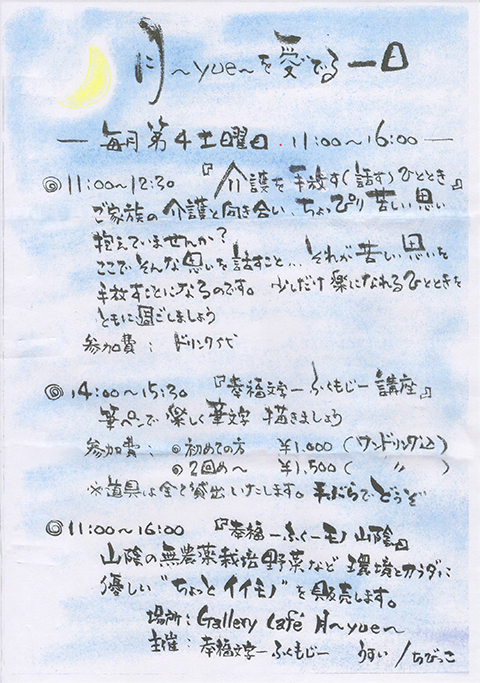 月~yue~を愛でる一日
ー 毎月第4土曜日 11:00~16:00 ー
◎11:00~12:30 『介護を手放す(話す)ひととき』
ご家族の介護と向き合い、ちょっぴり苦しい思い
抱えていませんか?
ここでそんな思いを話すこと... それが苦しい思いを
手放すことになるのです。 少しだけ楽になれるひとときを
ともに過ごしましょう
参加費: ドリンク代
◎14:00~15:30 『幸福文字ーふくもじー講座』
筆ペンで楽しく筆文字 描きましょう
参加費: ◎初めての方 ¥1,000 (ワンドリンク込)
◎2回め~ ¥1,500 ( 〃 )
※道具は全て貸出いたします。手ぶらでどうぞ
◎11:00~16:00 『幸福ーふくーモノ山陰』
山陰の無農薬栽培野菜など 環境とカラダに
優しい"ちょっとイイモノ"を販売します。
場所: Gallery Café 月~yue~
主催: 幸福文字ーふくもじー うすい/ちびっこ